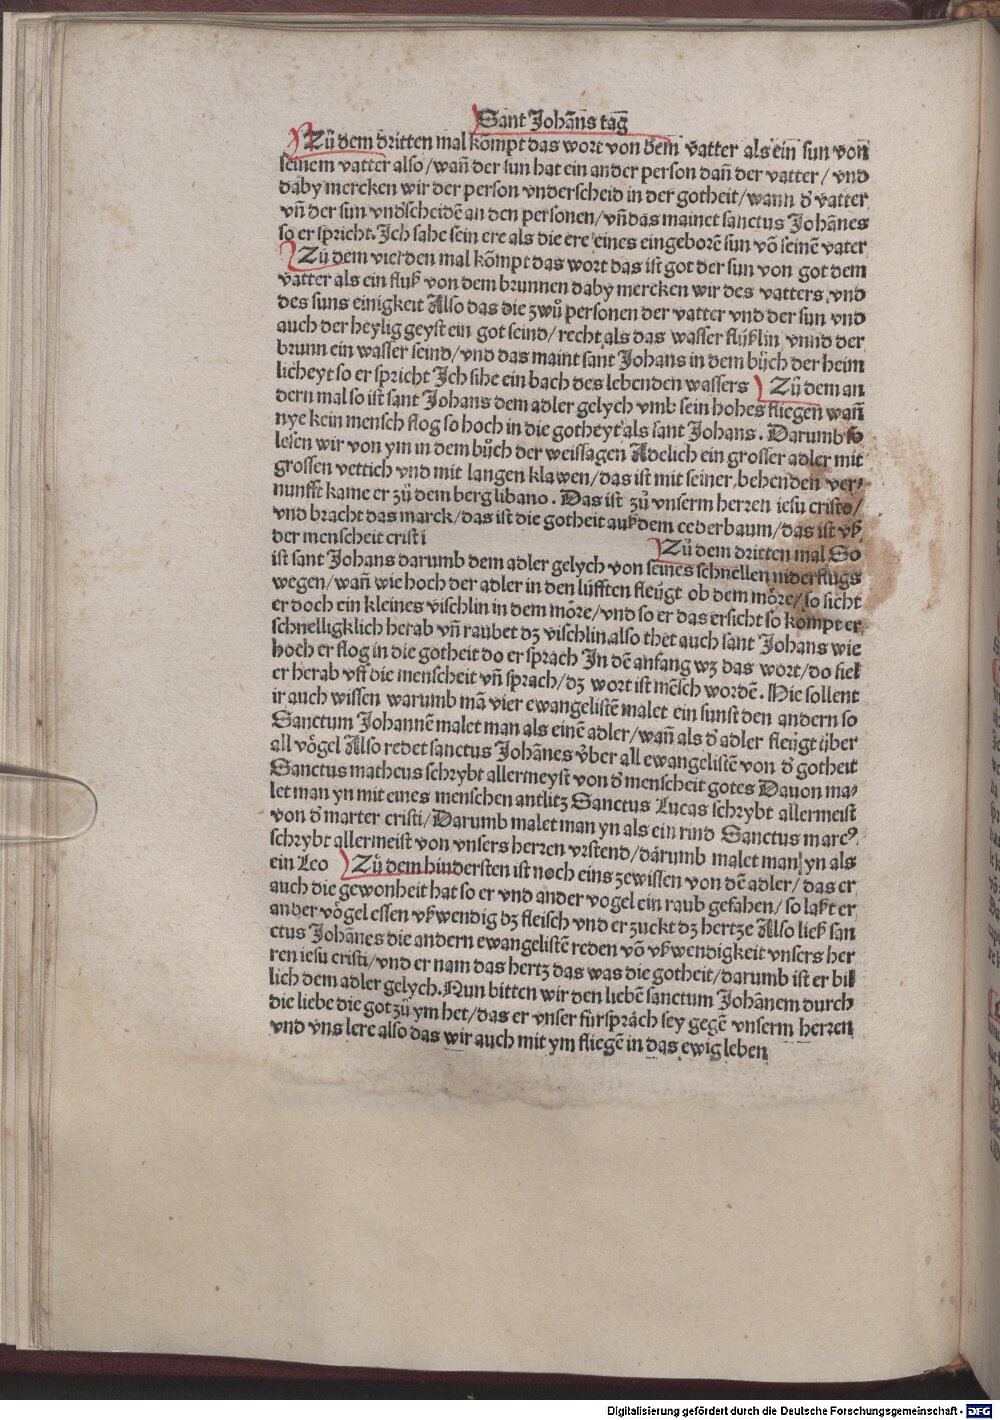 Sant Johãns tag
Zů dem dritten mal kõmpt das wort von dem vatter als ein sun von
seinem vatter also/wañ der sun hat ein ander person dañ der vatter/vnd
daby mercken wir der person vnderscheid in der gotheit/wann d' vatter
vñ der sun vnd'scheidẽ an den personen/vñ das mainet sanctus Johãnes
so er spricht. Ich sahe sein ere als die ere eines eingeborẽ sun võ seinẽ vater
Zů dem vierden mal kõmpt das wort das ist got der sun von got dem
vatter als ein fluß von dem brunnen daby mercken wir des vatters vnd
des suns einigkeit Also das die zwů personen der vatter vnd der sun vnd
auch der heylig geyst ein got seind/recht als das wasser flyßlin vnnd der
brunn ein wasser seind/vnd das maint sant Johans in dem bůch der heim
licheyt so er spricht Ich sihe ein bach des lebenden wassers Zů dem an
dern mal so ist sant Johans dem adler gelych vmb sein hohes fliegen wañ
nye kein mensch flog so hoch in die gotheyt als sant Johans. Darumb so
lesen wir von ym in dem bůch der weissagen Adelich ein grosser adler mit
grossen vettich vnd mit langen klawen/das ist mit seiner behenden ver-
nunfft kame er zů dem berg libano. Das ist zů vnserm herren iesu cristo/
vnd bracht das marck/das ist die gotheit auß dem cederbaum/das ist vß
der menscheit cristi
Zů dem dritten mal So
ist sant Johans darumb dem adler gelych von seines schnellen niderflugs
wegen/wañ wie hoch der adler in den lüfften fleügt ob dem möre/so sicht
er doch ein kleines vischlin in dem möre/vnd so er das ersicht so kompt er
schnelligklich herab vñ raubet dz vischlin also thet auch sant Johans wie
hoch er flog in die gotheit do er sprach In dẽ anfang wz das wort/do fiel
er herab vff die menscheit vñ sprach/dz wort ist mẽsch wordẽ. Hie sollent
ir auch wissen warumb mã vier ewangelistẽ malet ein sunst den andern so
Sanctum Johannẽ malet man als einẽ adler/wañ als d' adler fleügt über
all vögel Also redet sanctus Johãnes über all ewangelistẽ von d' gotheit
Sanctus matheus schrybt allermeyst von d' menscheit gotes Dauon ma-
let man yn mit eines menschen antlitz Sanctus Lucas schrybt allermeist
von d' marter cristi/Darumb malet man yn als ein rind Sanctus marc⁹
schrybt allermeist von vnsers herren vrstend/darumb malet man yn als
ein Leo Zů dem hindersten ist noch eins zewissen von dẽ adler/das er
auch die gewonheit hat so er vnd ander vogel ein raub gefahen/so laßt er
ander vögel essen vßwendig dz fleisch vnd er zuckt dz hertze Also ließ san
ctus Johãnes die andern ewangelistẽ reden võ vßwendigkeit vnsers her
ren iesu cristi/vnd er nam das hertz das was die gotheit/darumb ist er bil
lich dem adler gelych. Nun bitten wir den liebẽ sanctum Johãnem durch
die liebe die got zů ym het/das er vnser fürspräch sey gegẽ vnserm herren
vnd vns lere also das wir auch mit ym fliegẽ in das ewig leben
Digitalisierung gefördert durch die Deutsche Forschungsgemeinschaft - DFG